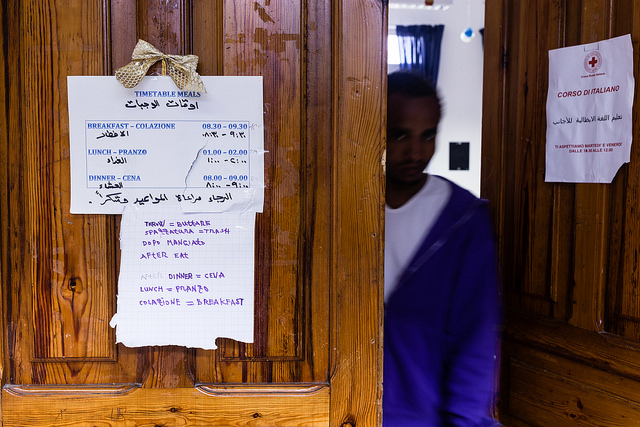 TIMETABLE MEALS
اوقات الوجبات
BREAKFAST – COLAZIONE 08.30 – 09.30
الافطار ٠٨:٣٠ – ٠٩:٣٠
LUNCH – PRANZO 01.00 – 02.00
الغداء ١:٠٠ – ٢:٠٠
DINNER – CENA 08.00 – 09.00
العشاء ٨:٠٠ – ٩:٠٠
الرجاء مراعاة المواعيد وشكراً.
THROW = BUTTARE
SPAZZATURA = TRASH
DOPO MANGIATO
AFTER EAT
AFTER DINNER = CENA
LUNCH = PRANZO
COLAZIONE = BREAKFAST
CORSO DI ITALIANO
تعليم اللغة الايطالية للأجانب
TI ASPETTIAMO MARTEDI' E VENERDI'